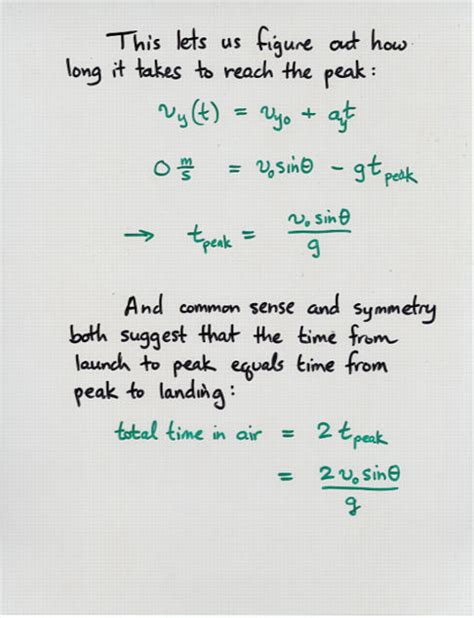 This lets us figure out how
long it takes to reach the peak:
v_y(t) = v_yo + a_y t
0 m/s = v₀ sinθ - g t_peak
→ t_peak = v₀ sinθ / g
And common sense and symmetry
both suggest that the time from
launch to peak equals time from
peak to landing:
total time in air = 2 t_peak
= 2 v₀ sinθ / g